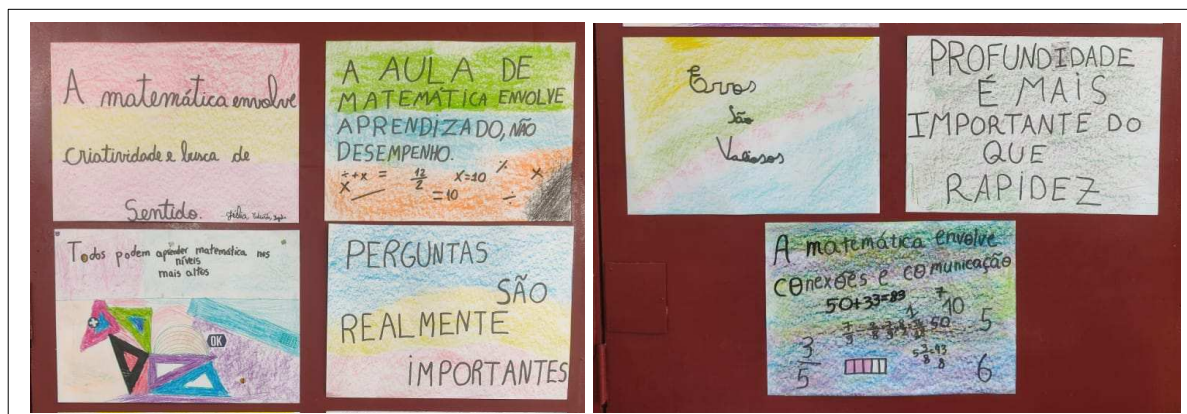 A matemática envolve
Criatividade e busca de
Sentido.
A AULA DE
MATEMÁTICA ENVOLVE
APRENDIZADO, NÃO
DESEMPENHO.
÷ + x =
12/2
X=10
=10
Todos podem aprender matemática nos
níveis
mais altos
OK
PERGUNTAS
SÃO
REALMENTE
IMPORTANTES
Erros
São
Valiosos
PROFUNDIDADE
É MAIS
IMPORTANTE DO
QUE
RAPIDEZ
A matemática envolve
conexões e comunicação
50+33=89
7
1
10
5
50
3/5
6